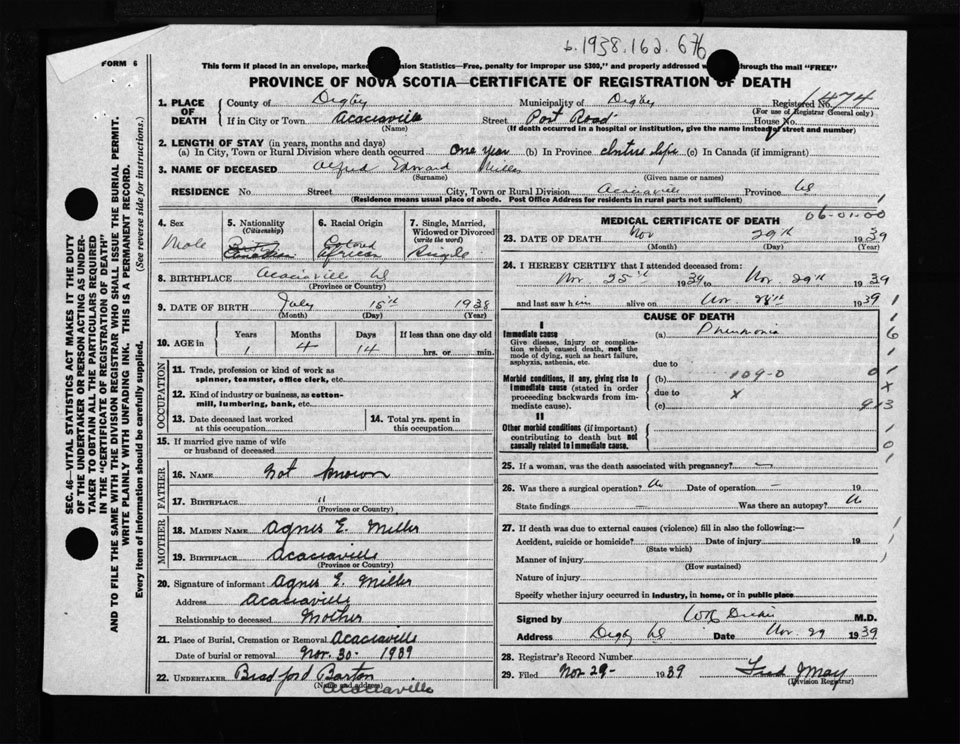 b.1938.162.676
FORM 6
This form if placed in an envelope, marked Statistics—Free, penalty for improper use $300," and properly addressed through the mail "FREE"
PROVINCE OF NOVA SCOTIA—CERTIFICATE OF REGISTRATION OF DEATH
1. PLACE OF DEATH
County of Digby Municipality of Digby Registered No. 1474
(For use of Registrar General only)
If in City or Town Acaciaville Street Post Road House No.
(Name) (If death occurred in a hospital or institution, give the name instead of street and number)
2. LENGTH OF STAY (in years, months and days)
(a) In City, Town or Rural Division where death occurred one year (b) In Province entire life (c) In Canada (if immigrant)
3. NAME OF DECEASED Alfred Edward Miller
(Surname) (Given name or names)
RESIDENCE No. Street City, Town or Rural Division Acaciaville Province NS
(Residence means usual place of abode. Post Office Address for residents in rural parts not sufficient)
4. Sex
Male
5. Nationality
(Citizenship)
Canadian
6. Racial Origin
Colored
African
7. Single, Married, Widowed or Divorced
(write the word)
Single
8. BIRTHPLACE Acaciaville NS
(Province or Country)
9. DATE OF BIRTH July 15th 1938
(Month) (Day) (Year)
10. AGE in
Years Months Days If less than one day old
1 4 14 hrs. or min.
OCCUPATION
11. Trade, profession or kind of work as
spinner, teamster, office clerk, etc.
12. Kind of industry or business, as cotton-
mill, lumbering, bank, etc.
13. Date deceased last worked
at this occupation
14. Total yrs. spent in
this occupation
15. If married give name of wife
or husband of deceased
FATHER
16. NAME Not known
17. BIRTHPLACE "
(Province or Country)
MOTHER
18. MAIDEN NAME Agnes E. Miller
19. BIRTHPLACE Acaciaville
(Province or Country)
20. Signature of informant Agnes E. Miller
Address Acaciaville
Relationship to deceased Mother
21. Place of Burial, Cremation or Removal Acaciaville
Date of burial or removal Nov. 30. 1939
22. UNDERTAKER Bradford Barton
(Name and address)
Acaciaville
MEDICAL CERTIFICATE OF DEATH
06-01-00
23. DATE OF DEATH Nov 29th 1939
(Month) (Day) (Year)
24. I HEREBY CERTIFY that I attended deceased from:
Nov. 25th 1939 to Nov. 29th 1939
and last saw him alive on Nov 28th 1939
CAUSE OF DEATH
I
Immediate cause
Give disease, injury or complica-
tion which caused death, not the
mode of dying, such as heart failure,
asphyxia, asthenia, etc.
(a) Pneumonia
due to
Morbid conditions, if any, giving rise to
immediate cause (stated in order
proceeding backwards from im-
mediate cause).
(b) 109-0
due to x
(c)
II
Other morbid conditions (if important)
contributing to death but not
causally related to immediate cause.
1
1
6
1
0 1
x
9 3
1
0
1
25. If a woman, was the death associated with pregnancy? —
26. Was there a surgical operation? No Date of operation — 19
State findings — Was there an autopsy? No
27. If death was due to external causes (violence) fill in also the following:—
Accident, suicide or homicide? Date of injury 19
(State which)
Manner of injury
(How sustained)
Nature of injury
Specify whether injury occurred in industry, in home, or in public place
Signed by M.D.
Address Digby NS Date Nov. 29 1939
28. Registrar's Record Number
29. Filed Nov 29- 1939 Fred J May
(Division Registrar)
SEC. 46—VITAL STATISTICS ACT MAKES IT THE DUTY
OF THE UNDERTAKER OR PERSON ACTING AS UNDER-
TAKER TO OBTAIN ALL THE PARTICULARS REQUIRED
IN THE "CERTIFICATE OF REGISTRATION OF DEATH"
AND TO FILE THE SAME WITH THE DIVISION REGISTRAR WHO SHALL ISSUE THE BURIAL PERMIT.
WRITE PLAINLY WITH UNFADING INK. THIS IS A PERMANENT RECORD.
Every item of information should be carefully supplied. (See reverse side for instructions.)